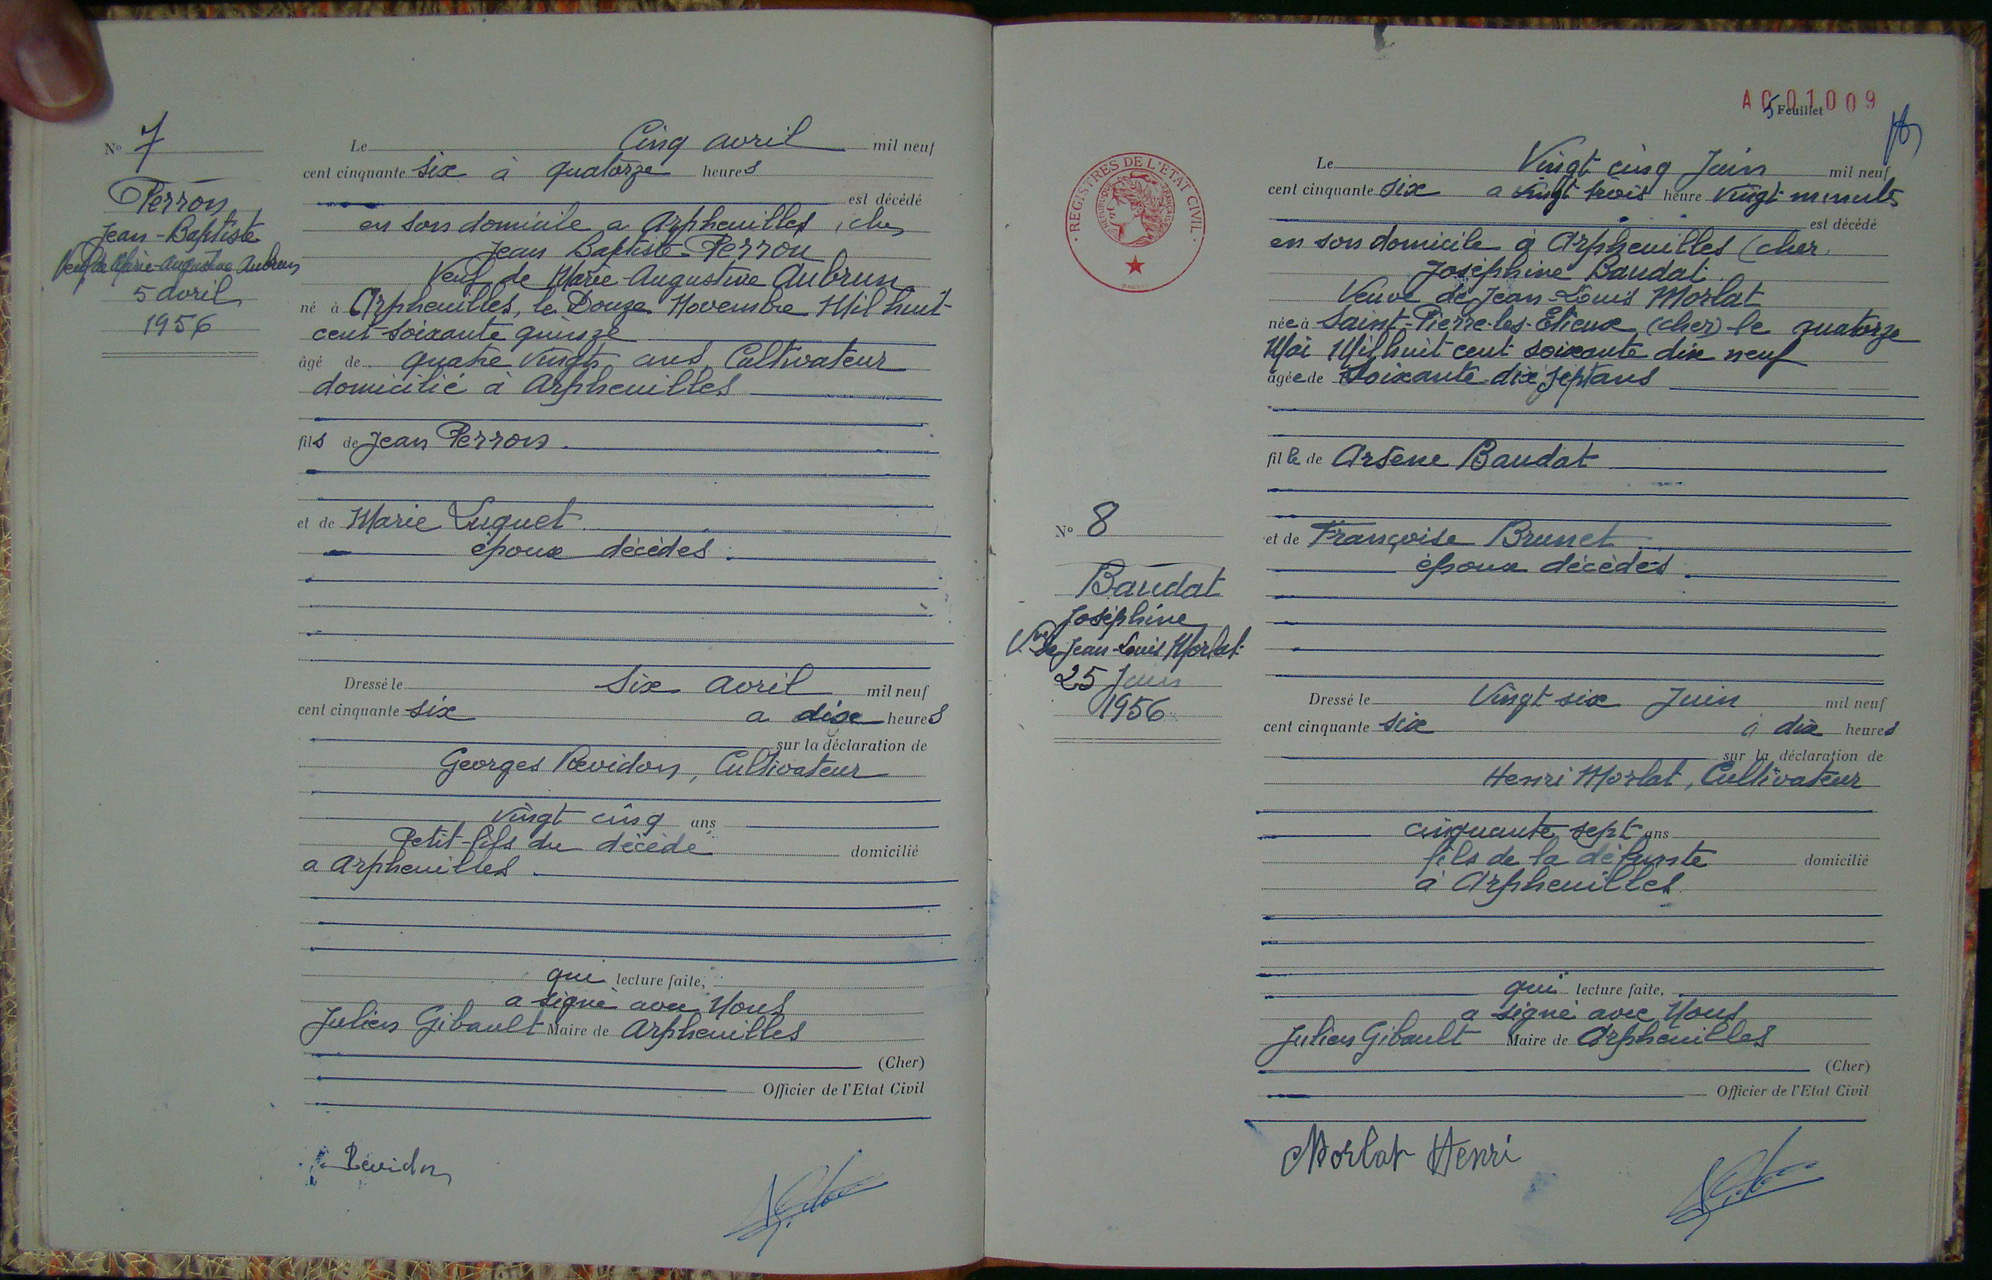 N° 7
Perron
Jean-Baptiste
Veuf de Marie-Augustine Aubrun
5 avril
1956
Le Cinq avril mil neuf
cent cinquante six à quatorze heures
est décédé
en son domicile a Arpheuilles (cher
Jean Baptiste Perron
Veuf de Marie-Augustine Aubrun
né à Arpheuilles, le Douze Novembre Mil huit
cent soixante quinze
âgé de quatre vingts ans, Cultivateur
domicilié à Arpheuilles
fils de Jean Perron
et de Marie Luquet
époux décédés.
Dressé le six avril mil neuf
cent cinquante six a dix heures
sur la déclaration de
Georges Revidon, Cultivateur
vingt cinq ans
Petit-fils du décédé domicilié
a Arpheuilles
qui lecture faite,
a signé avec Nous
Julien Gibault Maire de Arpheuilles
(Cher)
Officier de l'Etat Civil
AC 01009
5 Feuillet
REGISTRES DE L'ETAT CIVIL
N° 8
Baudat
Joséphine
Vve de Jean-Louis Morlat
25 Juin
1956
Le Vingt cinq Juin mil neuf
cent cinquante six a vingt trois heure vingt minutes
est décédé
en son domicile à Arpheuilles (cher
Joséphine Baudat
Veuve de Jean-Louis Morlat
née à Saint-Pierre-les-Etieux (cher) le quatorze
Mai Mil huit cent soixante dix neuf
agée de soixante dix sept ans
fille de Arsène Baudat
et de Françoise Brunet
époux décédés
Dressé le Vingt six Juin mil neuf
cent cinquante six à dix heures
sur la déclaration de
Henri Morlat, Cultivateur
cinquante sept ans
fils de la défunte domicilié
à Arpheuilles
qui lecture faite,
a signé avec Nous
Julien Gibault Maire de Arpheuilles
(Cher)
Officier de l'Etat Civil
Revidon
Morlat Henri